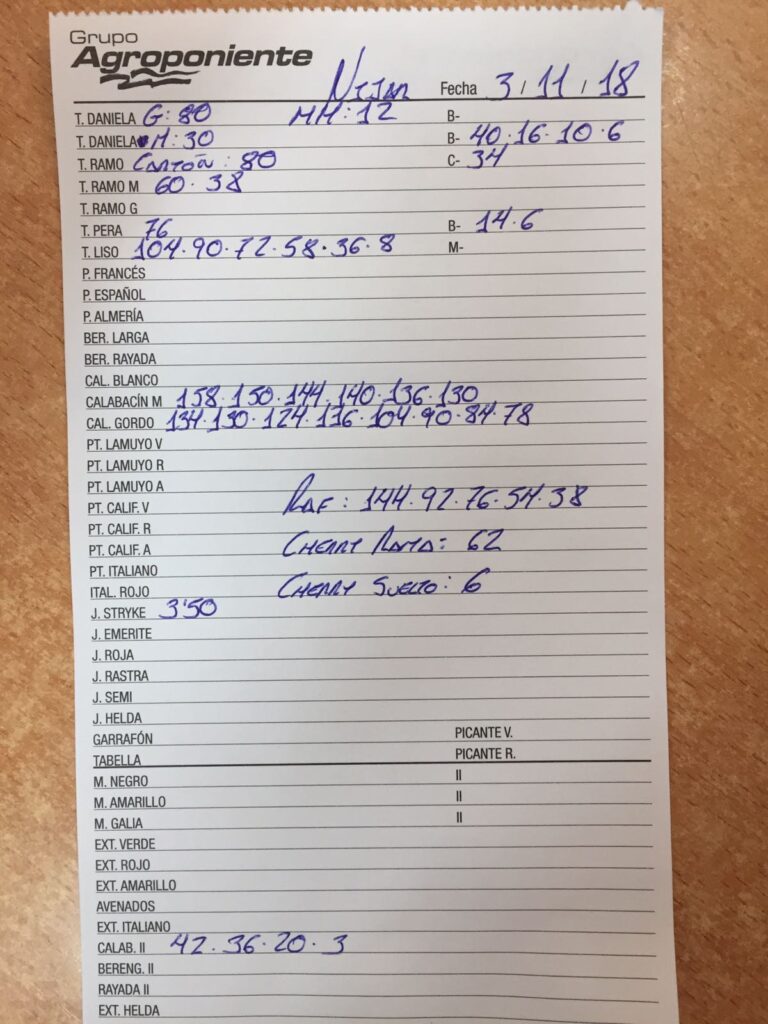 Grupo
Agroponiente
Nijar Fecha 3 / 11 / 18
T. DANIELA G: 80 MM: 12 B-
T. DANIELA M: 30 B- 40·16·10·6
T. RAMO Cartón: 80 C- 34
T. RAMO M 60·38
T. RAMO G
T. PERA 76 B- 14·6
T. LISO 104·90·72·58·36·8 M-
P. FRANCÉS
P. ESPAÑOL
P. ALMERÍA
BER. LARGA
BER. RAYADA
CAL. BLANCO
CALABACÍN M 158·150·144·140·136·130
CAL. GORDO 134·130·124·116·104·90·84·78
PT. LAMUYO V
PT. LAMUYO R
PT. LAMUYO A
PT. CALIF. V RAF: 144·92·76·54·38
PT. CALIF. R
PT. CALIF. A CHERRY RAMA: 62
PT. ITALIANO
ITAL. ROJO CHERRY SUELTO: 6
J. STRYKE 3'50
J. EMERITE
J. ROJA
J. RASTRA
J. SEMI
J. HELDA
GARRAFÓN PICANTE V.
TABELLA PICANTE R.
M. NEGRO II
M. AMARILLO II
M. GALIA II
EXT. VERDE
EXT. ROJO
EXT. AMARILLO
AVENADOS
EXT. ITALIANO
CALAB. II 42·36·20·3
BERENG. II
RAYADA II
EXT. HELDA